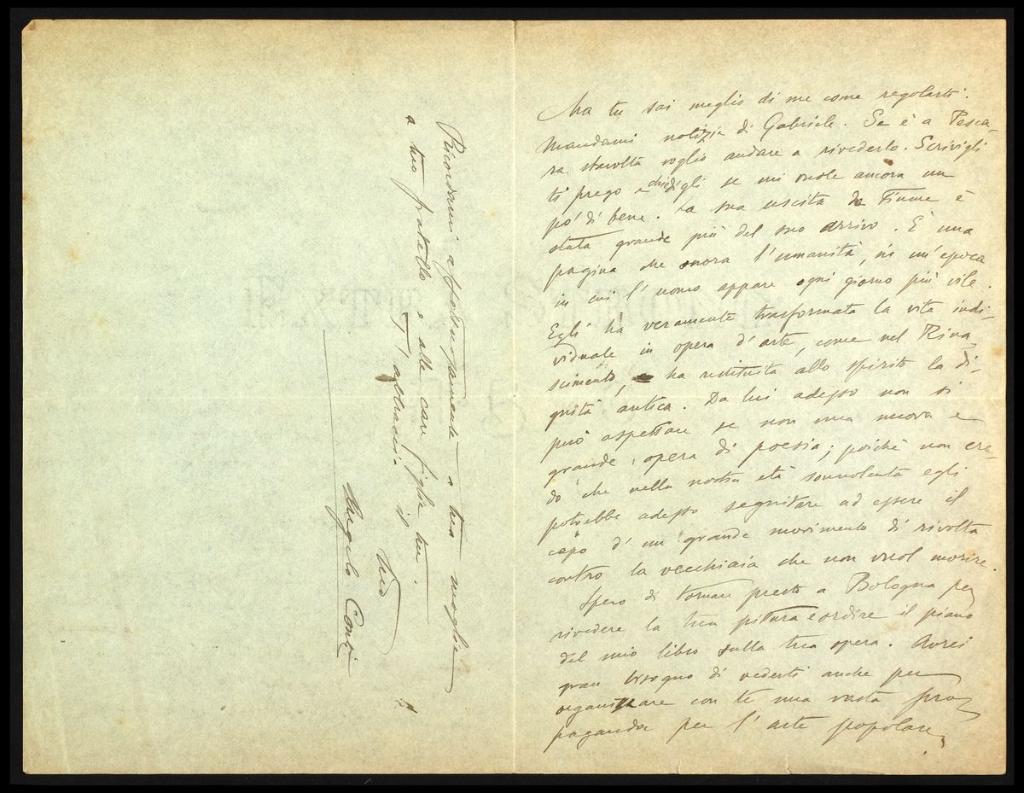 Ma tu sai meglio di me come regolarti.
Mandami notizie di Gabriele. Se è a Pesca-
ra stavolta voglio andare a rivederlo. Scrivigli
ti prego e digli se mi vuole ancora un
pò di bene. La sua uscita da Fiume è
stata grande più del suo arrivo. È una
pagina che onora l'umanità, in un'epoca
in cui l'uomo appare ogni giorno più vile.
Egli ha veramente trasformata la vita indi-
viduale in opera d'arte, come nel Rina-
scimento, e ha restituita allo spirito la di-
gnità antica. Da lui adesso non si
può aspettare se non una nuova e
grande opera di poesia; poichè non cre-
do che nella nostra età sonnolenta egli
potrebbe adesso seguitare ad essere il
capo d'un grande movimento di rivolta
contro la vecchiaia che non vuol morire.
Spero di tornare presto a Bologna per
rivedere la tua pittura e ordire il piano
del mio libro sulla tua opera. Avrei
gran bisogno di vederti anche per
organizzare con te una vasta pro-
paganda per l'arte popolare.
Ricordami affettuosamente a tua moglie
a tuo fratello e alle care figlie tue.
T'abbraccia il
tuo
Angelo Conti